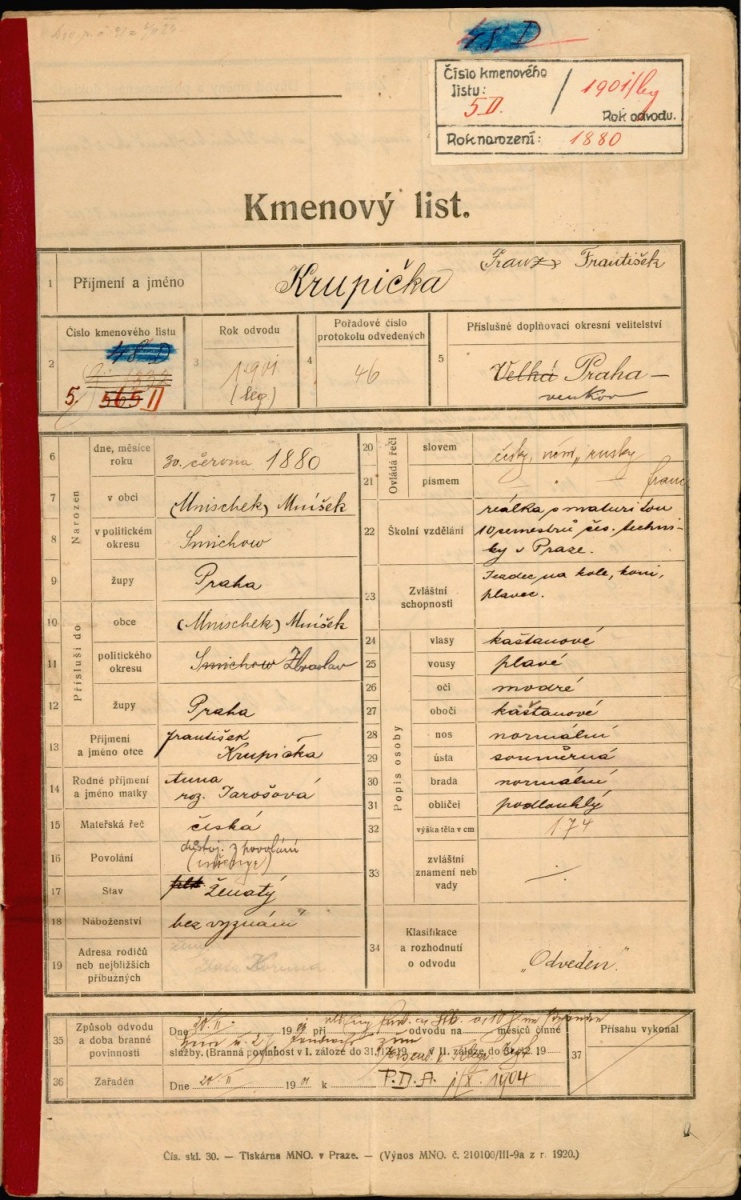 48 D
Číslo kmenového
listu:
5 II. / 1901/leg
Rok odvodu.
Rok narození: 1880
Kmenový list.
1 Příjmení a jméno Krupička Franz František
2 Číslo kmenového listu
48 D
5. 565 II
3 Rok odvodu
1901
(leg)
4 Pořadové číslo
protokolu odvedených
46
5 Příslušné doplňovací okresní velitelství
Velká Praha —
venkov
Narozen
6 dne, měsíce
roku 30. června 1880
7 v obci (Mnischek) Mníšek
8 v politickém
okresu Smichow
9 župy Praha
Přísluší do
10 obce (Mnischek) Mníšek
11 politického
okresu Smichow Zbraslav
12 župy Praha
13 Příjmení
a jméno otce František
Krupička
14 Rodné příjmení
a jméno matky Anna
roz. Jarošová
15 Mateřská řeč česká
16 Povolání důstoj. z povolání
17 Stav Ženatý
18 Náboženství bez vyznání
19 Adresa rodičů
neb nejbližších
příbuzných
Ovládá řeči
20 slovem česky, něm, rusky
21 písmem " franc
22 Školní vzdělání reálka s maturitou
10 semestrů čes. techni-
ky v Praze.
23 Zvláštní
schopnosti Jezdec na kole, koni,
plavec.
Popis osoby
24 vlasy kaštanové
25 vousy plavé
26 oči modré
27 obočí kaštanové
28 nos normální
29 ústa souměrná
30 brada normální
31 obličej podlouhlý
32 výška těla v cm 174
33 zvláštní
znamení neb
vady ./.
34 Klasifikace
a rozhodnutí
o odvodu „Odveden“.
35 Způsob odvodu
a doba branné
povinnosti
Dne 20./II. 1901 při odvodu na měsíců činné
služby. (Branná povinnost v I. záloze do 31./12. 19 v II. záloze do 31./12. 19
36 Zařaděn Dne 20/II 1901 k P.D.A. 1/X. 1904
37 Přísahu vykonal
Čís. skl. 30. — Tiskárna MNO. v Praze. — (Výnos MNO. č. 210100/III-9a z r. 1920.)